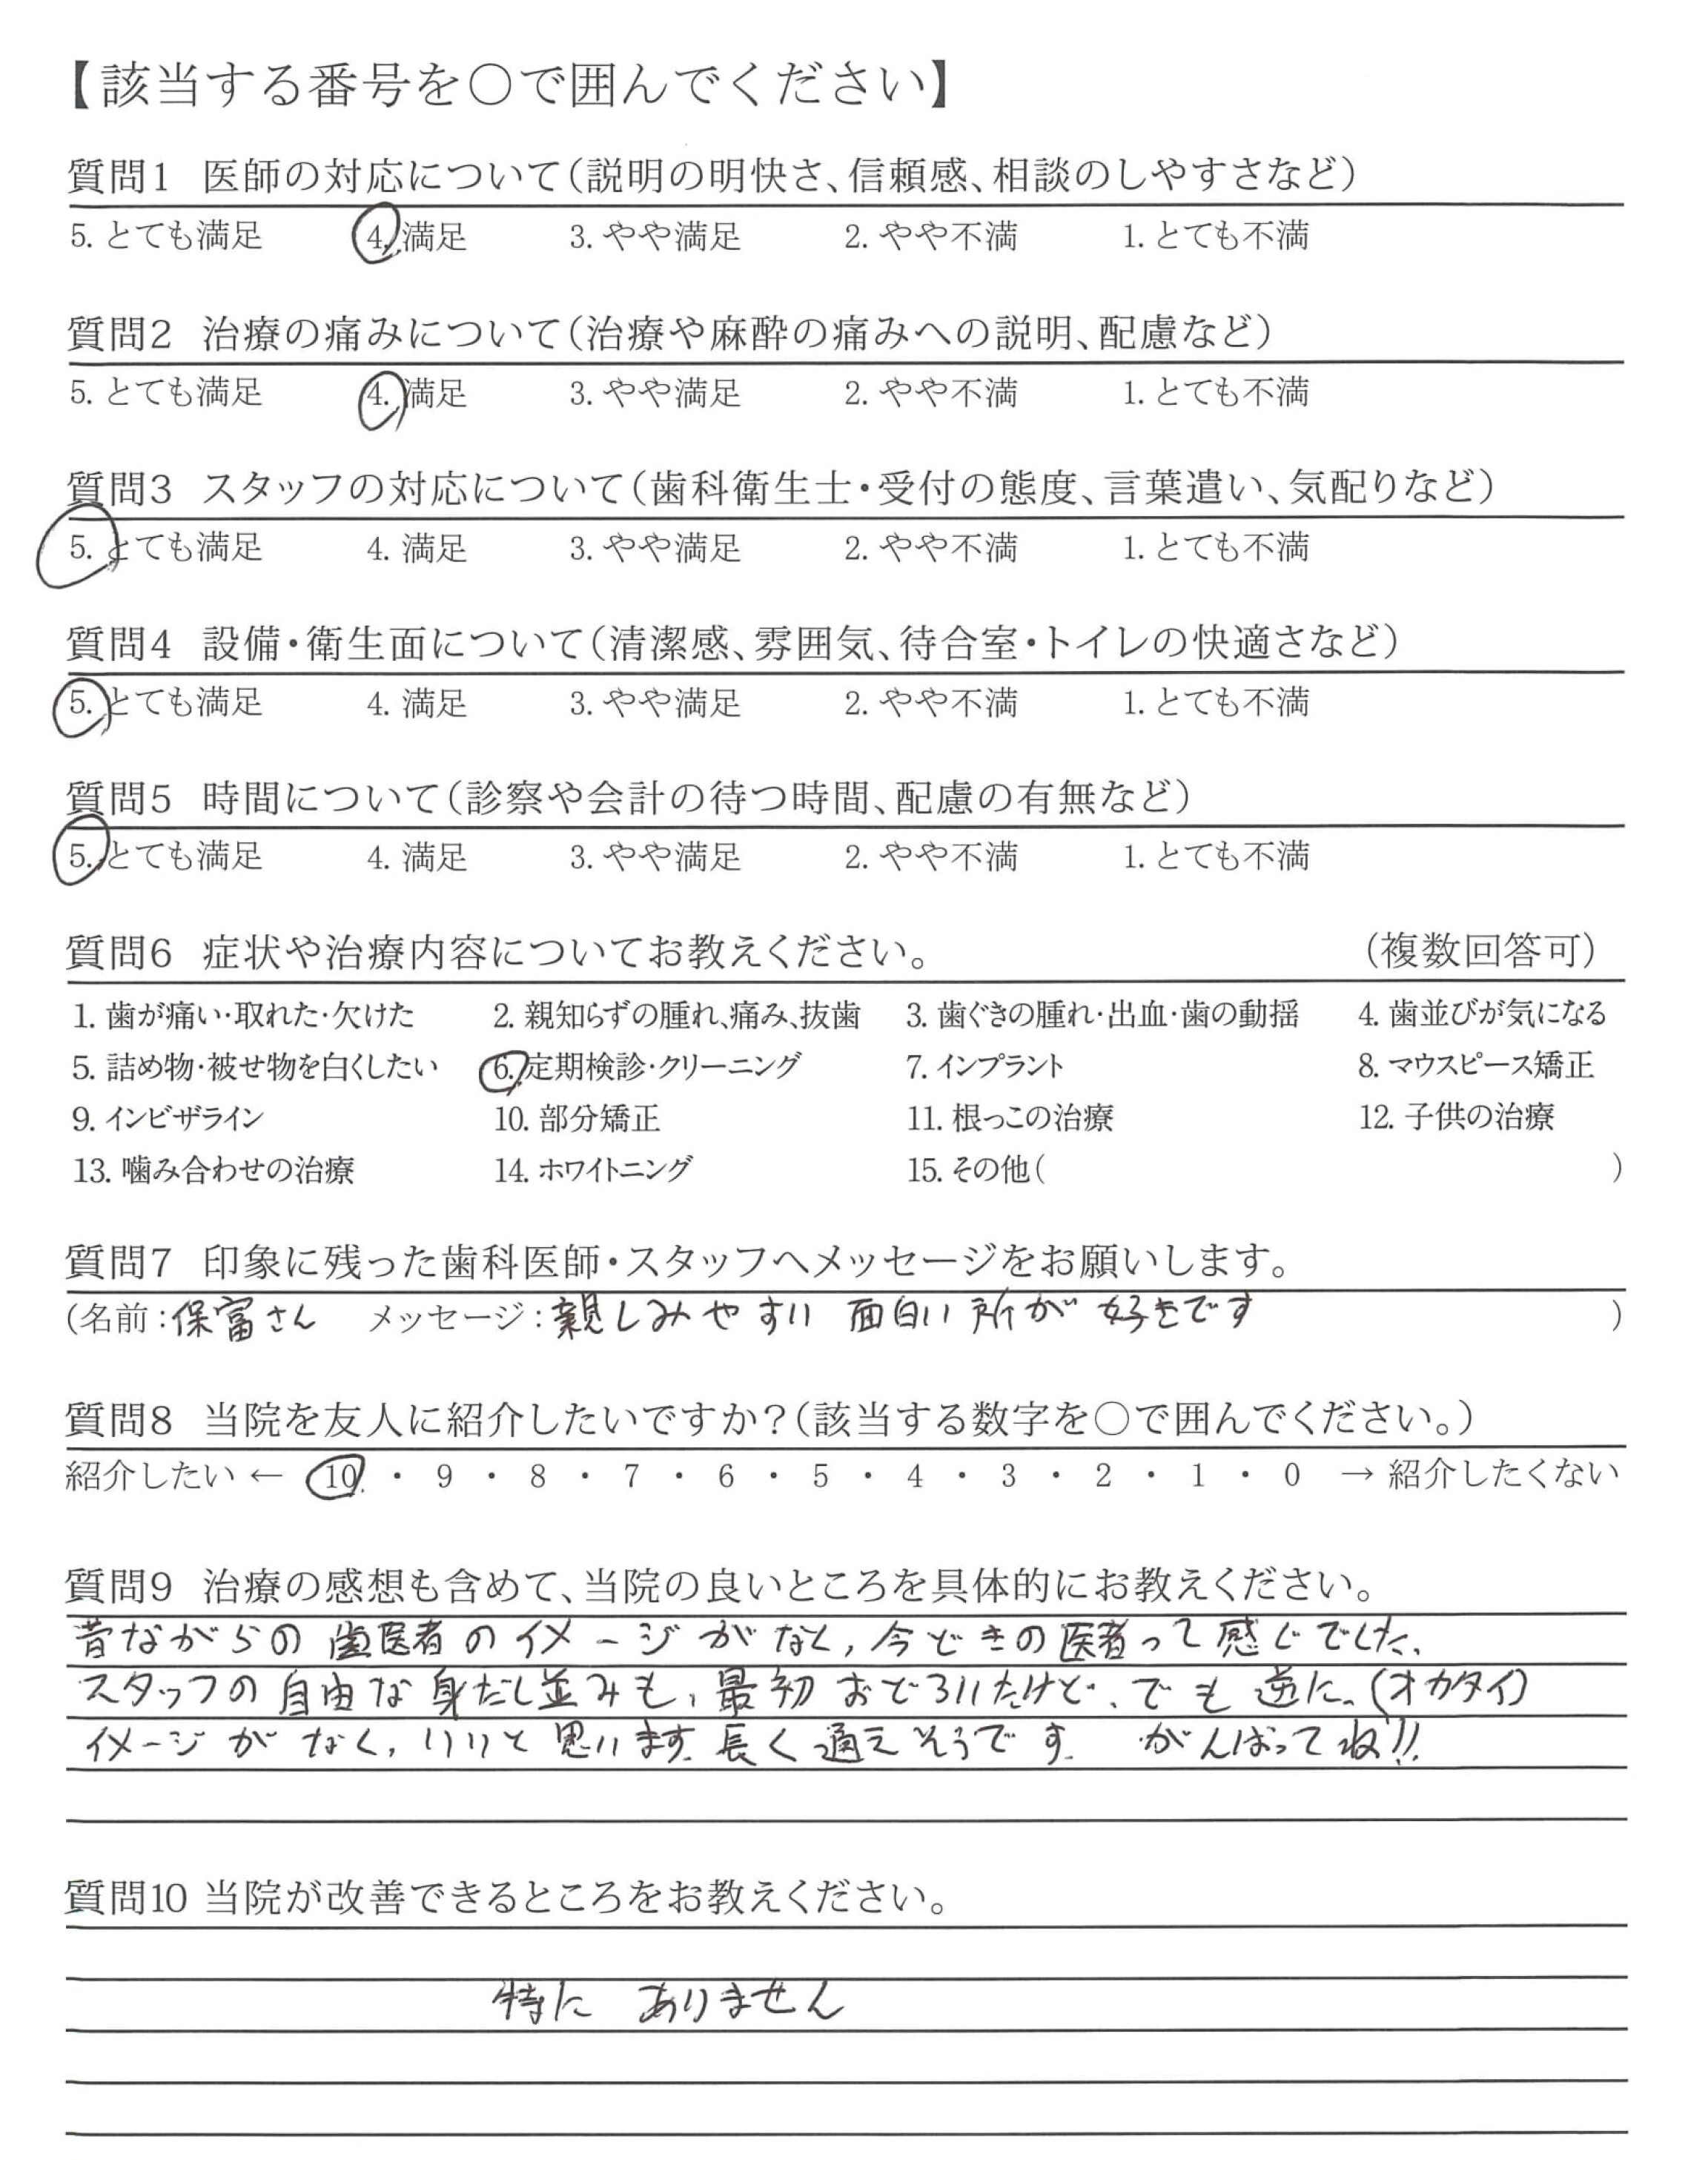 【該当する番号を○で囲んでください】
質問1 医師の対応について(説明の明快さ、信頼感、相談のしやすさなど)
5. とても満足 4. 満足 3. やや満足 2. やや不満 1. とても不満
質問2 治療の痛みについて(治療や麻酔の痛みへの説明、配慮など)
5. とても満足 4. 満足 3. やや満足 2. やや不満 1. とても不満
質問3 スタッフの対応について(歯科衛生士・受付の態度、言葉遣い、気配りなど)
5. とても満足 4. 満足 3. やや満足 2. やや不満 1. とても不満
質問4 設備・衛生面について(清潔感、雰囲気、待合室・トイレの快適さなど)
5. とても満足 4. 満足 3. やや満足 2. やや不満 1. とても不満
質問5 時間について(診察や会計の待つ時間、配慮の有無など)
5. とても満足 4. 満足 3. やや満足 2. やや不満 1. とても不満
質問6 症状や治療内容についてお教えください。 (複数回答可)
1. 歯が痛い・取れた・欠けた 2. 親知らずの腫れ、痛み、抜歯 3. 歯ぐきの腫れ・出血・歯の動揺 4. 歯並びが気になる
5. 詰め物・被せ物を白くしたい 6. 定期検診・クリーニング 7. インプラント 8. マウスピース矯正
9. インビザライン 10. 部分矯正 11. 根っこの治療 12. 子供の治療
13. 噛み合わせの治療 14. ホワイトニング 15. その他( )
質問7 印象に残った歯科医師・スタッフへメッセージをお願いします。
(名前:保富さん メッセージ:親しみやすい 面白い所が 好きです )
質問8 当院を友人に紹介したいですか?(該当する数字を○で囲んでください。)
紹介したい ← 10 ・ 9 ・ 8 ・ 7 ・ 6 ・ 5 ・ 4 ・ 3 ・ 2 ・ 1 ・ 0 → 紹介したくない
質問9 治療の感想も含めて、当院の良いところを具体的にお教えください。
昔ながらの 歯医者のイメージがなく, 今どきの医者って感じでした、
スタッフの自由な身だし並みも, 最初おどろいたけど、でも逆に、(オカタイ)
イメージがなく, いいと思います. 長く通えそうです. がんばってね!!
質問10 当院が改善できるところをお教えください。
特に ありません